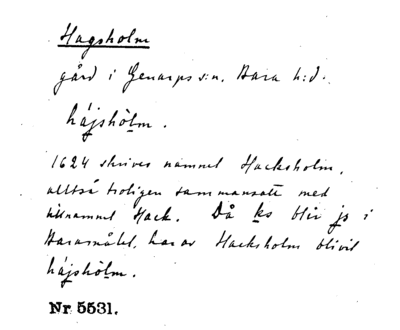 Hagsholm
gård i Genarps s:n, Bara h:d.
hájshòlm.
1624 skrives namnet Hacksholm,
alltså troligen sammansatt med
tillnamnet Hack. Då ks blir js i
Baramålet, har av Hacksholm blivit
hájshòlm.
Nr 5531.